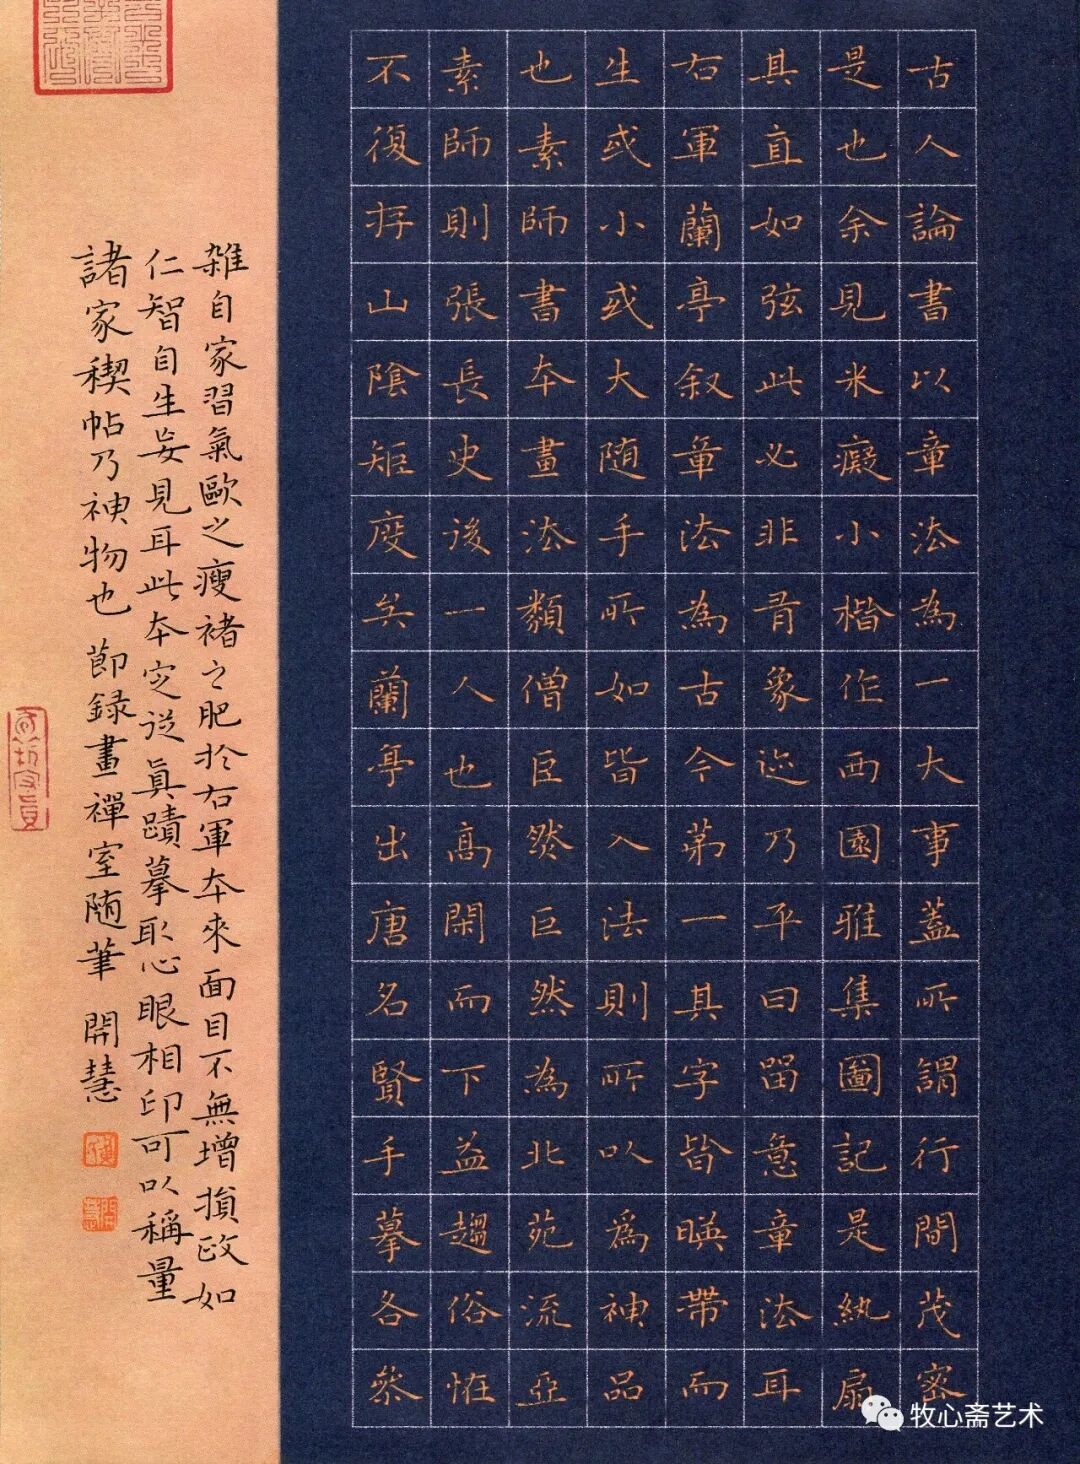 古人論書以章法為一大事蓋所謂行間茂密
是也余見米癡小楷作西園雅集圖記是紈扇
其直如弦此必非有象迹乃平日留意章法耳
右軍蘭亭叙章法為古今第一其字皆暎帶而
生或小或大随手所如皆入法則所以為神品
也素師書本畫法類僧巨然巨然為北苑流亞
素師則張長史後一人也高閑而下益趨俗怪
不復存山陰矩度矣蘭亭出唐名賢手摹各叅
雜自家習氣歐之瘦褚之肥於右軍本來面目不無增損政如
仁智自生妄見耳此本定從真蹟摹取心眼相印可以稱量
諸家稧帖乃神物也 節録畫禪室随筆 開慧
牧心斋艺术